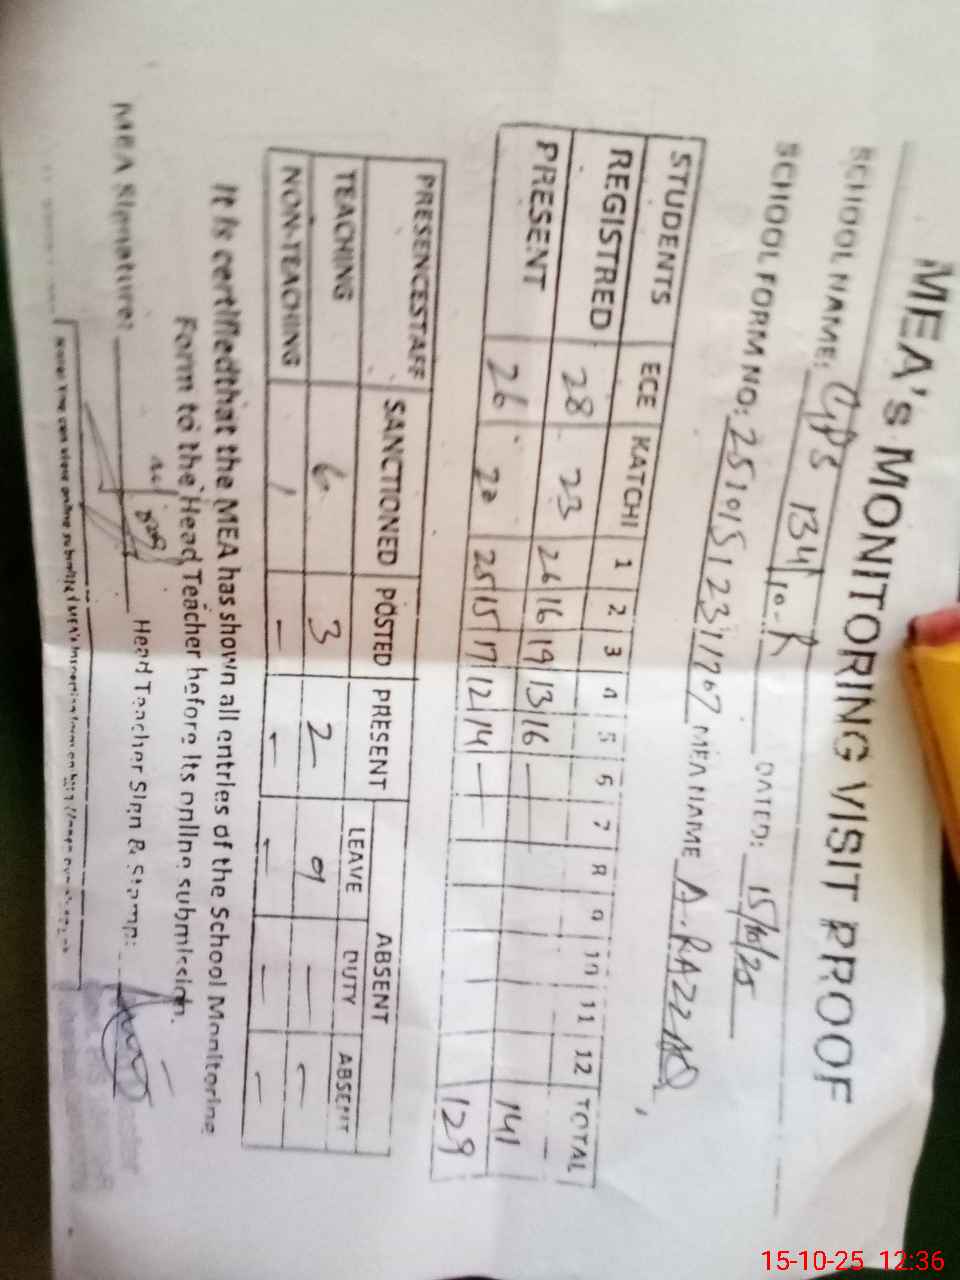 MEA's MONITORING VISIT PROOF
SCHOOL NAME: GPS 134/10-R DATED: 15/10/25
SCHOOL FORM NO: 25101512311767 MEA NAME A.RAZZAQ,
STUDENTS ECE KATCHI 1 2 3 4 5 6 7 8 9 10 11 12 TOTAL
REGISTRED 28 23 26 16 19 13 16 — 141
PRESENT 26 20 25 15 17 12 14 — 129
PRESENCESTAFF SANCTIONED POSTED PRESENT ABSENT
LEAVE DUTY ABSENT
TEACHING 6 3 2 — —
NON-TEACHING 1 — — — — —
It is certifiedthat the MEA has shown all entries of the School Monitoring
Form to the Head Teacher before its online submission.
MEA Signature: Head Teacher Sign & Stamp:
Note: You can view online submitted MEA's
15-10-25 12:36